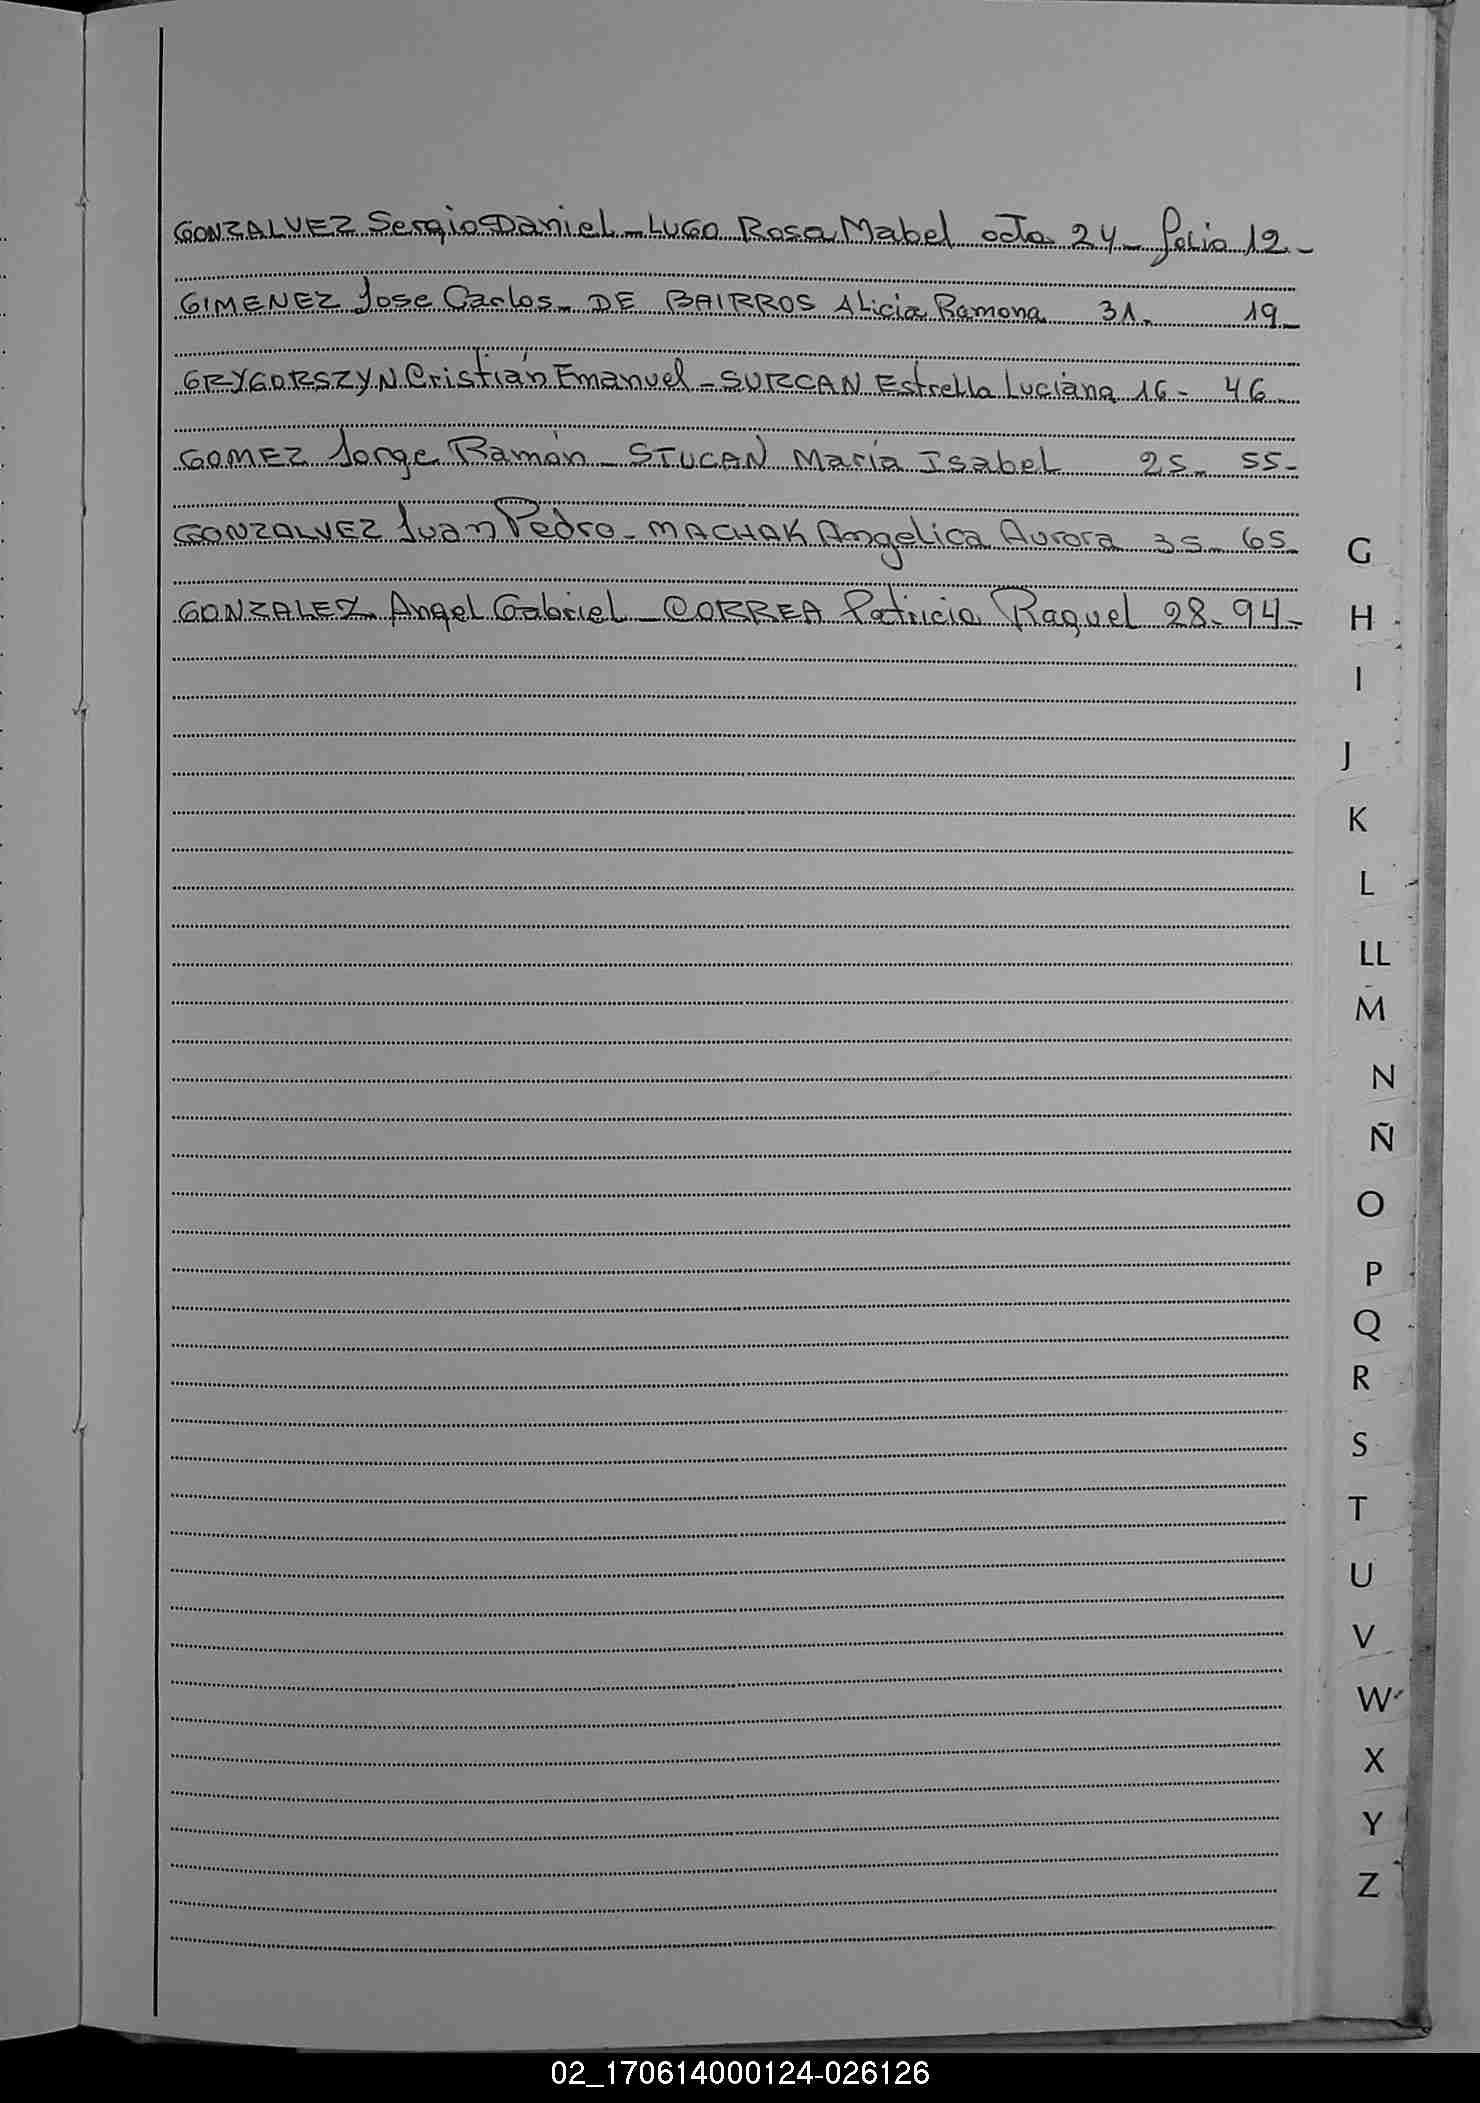 GONZALVEZ Sergio Daniel - LUGO Rosa Mabel acta 24 - folio 12 -
GIMENEZ Jose Carlos - DE BAIRROS Alicia Ramona 31 - 19 -
GRYGORSZYN Cristián Emanuel - SURCAN Estrella Luciana 16 - 46
GOMEZ Jorge Ramón - STUCAN María Isabel 25 - 55 -
GONZALVEZ Juan Pedro - MACHAK Angelica Aurora 35 - 65 -
GONZALEZ Angel Gabriel - CORREA Patricia Raquel 28 - 94 -
G
H
I
J
K
L
LL
M
N
Ñ
O
P
Q
R
S
T
U
V
W
X
Y
Z
02_170614000124-026126